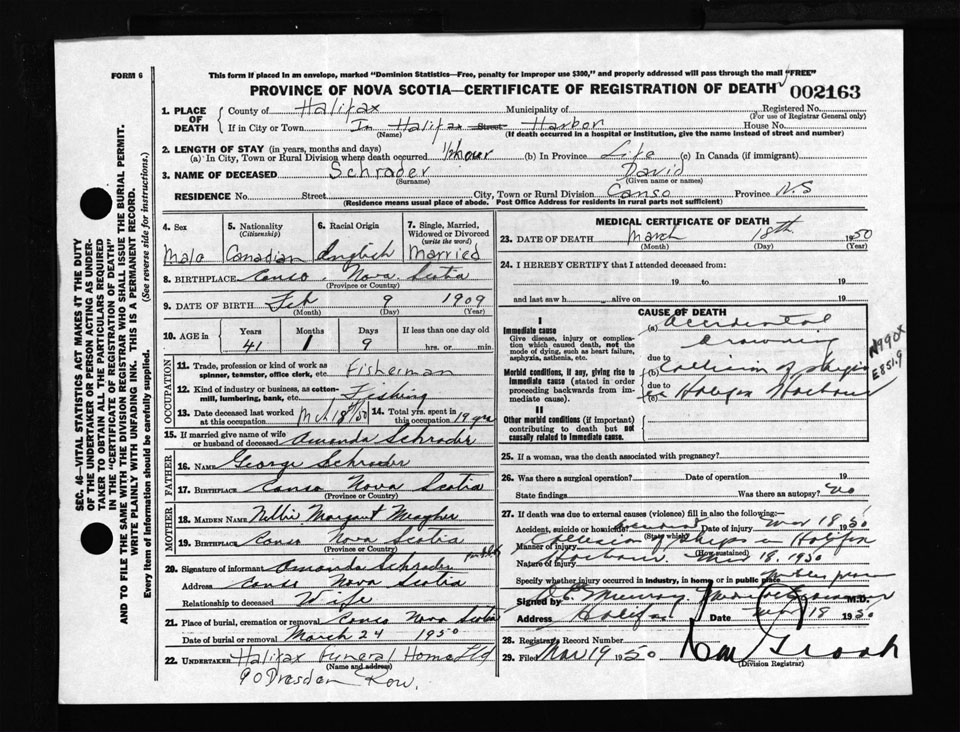 FORM 6
This form if placed in an envelope, marked "Dominion Statistics—Free, penalty for improper use $300," and properly addressed will pass through the mail "FREE"
PROVINCE OF NOVA SCOTIA—CERTIFICATE OF REGISTRATION OF DEATH 002163
1. PLACE OF DEATH
County of Halifax Municipality of Registered No.
(For use of Registrar General only)
If in City or Town In Halifax Street Harbor House No.
(Name) (If death occurred in a hospital or institution, give the name instead of street and number)
2. LENGTH OF STAY (in years, months and days)
(a) In City, Town or Rural Division where death occurred 1/2 hour (b) In Province Life (c) In Canada (if immigrant)
3. NAME OF DECEASED Schrader David
(Surname) (Given name or names)
RESIDENCE No. Street City, Town or Rural Division Canso Province N.S
(Residence means usual place of abode. Post Office Address for residents in rural parts not sufficient)
4. Sex
Male
5. Nationality
(Citizenship)
Canadian
6. Racial Origin
English
7. Single, Married, Widowed or Divorced
(write the word)
Married
8. BIRTHPLACE Canso, Nova Scotia
(Province or Country)
9. DATE OF BIRTH Feb 9 1909
(Month) (Day) (Year)
10. AGE in
Years Months Days If less than one day old
41 1 9 hrs. or min.
OCCUPATION
11. Trade, profession or kind of work as spinner, teamster, office clerk, etc. Fisherman
12. Kind of industry or business, as cotton-mill, lumbering, bank, etc. Fishing
13. Date deceased last worked at this occupation Mch 18/50
14. Total yrs. spent in this occupation 19 yrs
15. If married give name of wife or husband of deceased Amanda Schrader
FATHER
16. NAME George Schrader
17. BIRTHPLACE Canso Nova Scotia
(Province or Country)
MOTHER
18. MAIDEN NAME Nellie Margaret Meagher
19. BIRTHPLACE Canso Nova Scotia
(Province or Country)
20. Signature of informant Amanda Schrader
Address Canso Nova Scotia
Relationship to deceased Wife
21. Place of burial, cremation or removal Canso Nova Scotia
Date of burial or removal March 24 1950
22. UNDERTAKER Halifax Funeral Home Ltd
(Name and address)
90 Dresden Row.
MEDICAL CERTIFICATE OF DEATH
23. DATE OF DEATH March 18th 1950
(Month) (Day) (Year)
24. I HEREBY CERTIFY that I attended deceased from:
19 to 19
and last saw h alive on 19
CAUSE OF DEATH
I
Immediate cause
Give disease, injury or complication which caused death, not the mode of dying, such as heart failure, asphyxia, asthenia, etc.
(a) Accidental
drowning
due to
Morbid conditions, if any, giving rise to immediate cause (stated in order proceeding backwards from immediate cause).
(b) Collision of ships
due to
(c) in Halifax Harbour
N990X
E851.9
II
Other morbid conditions (if important) contributing to death but not causally related to immediate cause.
25. If a woman, was the death associated with pregnancy?
26. Was there a surgical operation? Date of operation 19
State findings Was there an autopsy? No
27. If death was due to external causes (violence) fill in also the following:
Accident, suicide or homicide? Accident Date of injury Mar 18 1950
(State which)
Manner of injury Collision of ships in Halifax
(How sustained)
Nature of injury Harbour. Mar 18. 1950
Specify whether injury occurred in industry, in home or in public place Public place
Signed by Murray Medical Examiner M.D.
Address Halifax Date Mar 19 1950
28. Registrar's Record Number
29. Filed Mar 19 1950
(Division Registrar)
SEC. 46—VITAL STATISTICS ACT MAKES IT THE DUTY
OF THE UNDERTAKER OR PERSON ACTING AS UNDER-
TAKER TO OBTAIN ALL THE PARTICULARS REQUIRED
IN THE "CERTIFICATE OF REGISTRATION OF DEATH"
AND TO FILE THE SAME WITH THE DIVISION REGISTRAR WHO SHALL ISSUE THE BURIAL PERMIT.
WRITE PLAINLY WITH UNFADING INK. THIS IS A PERMANENT RECORD.
Every item of information should be carefully supplied. (See reverse side for instructions.)